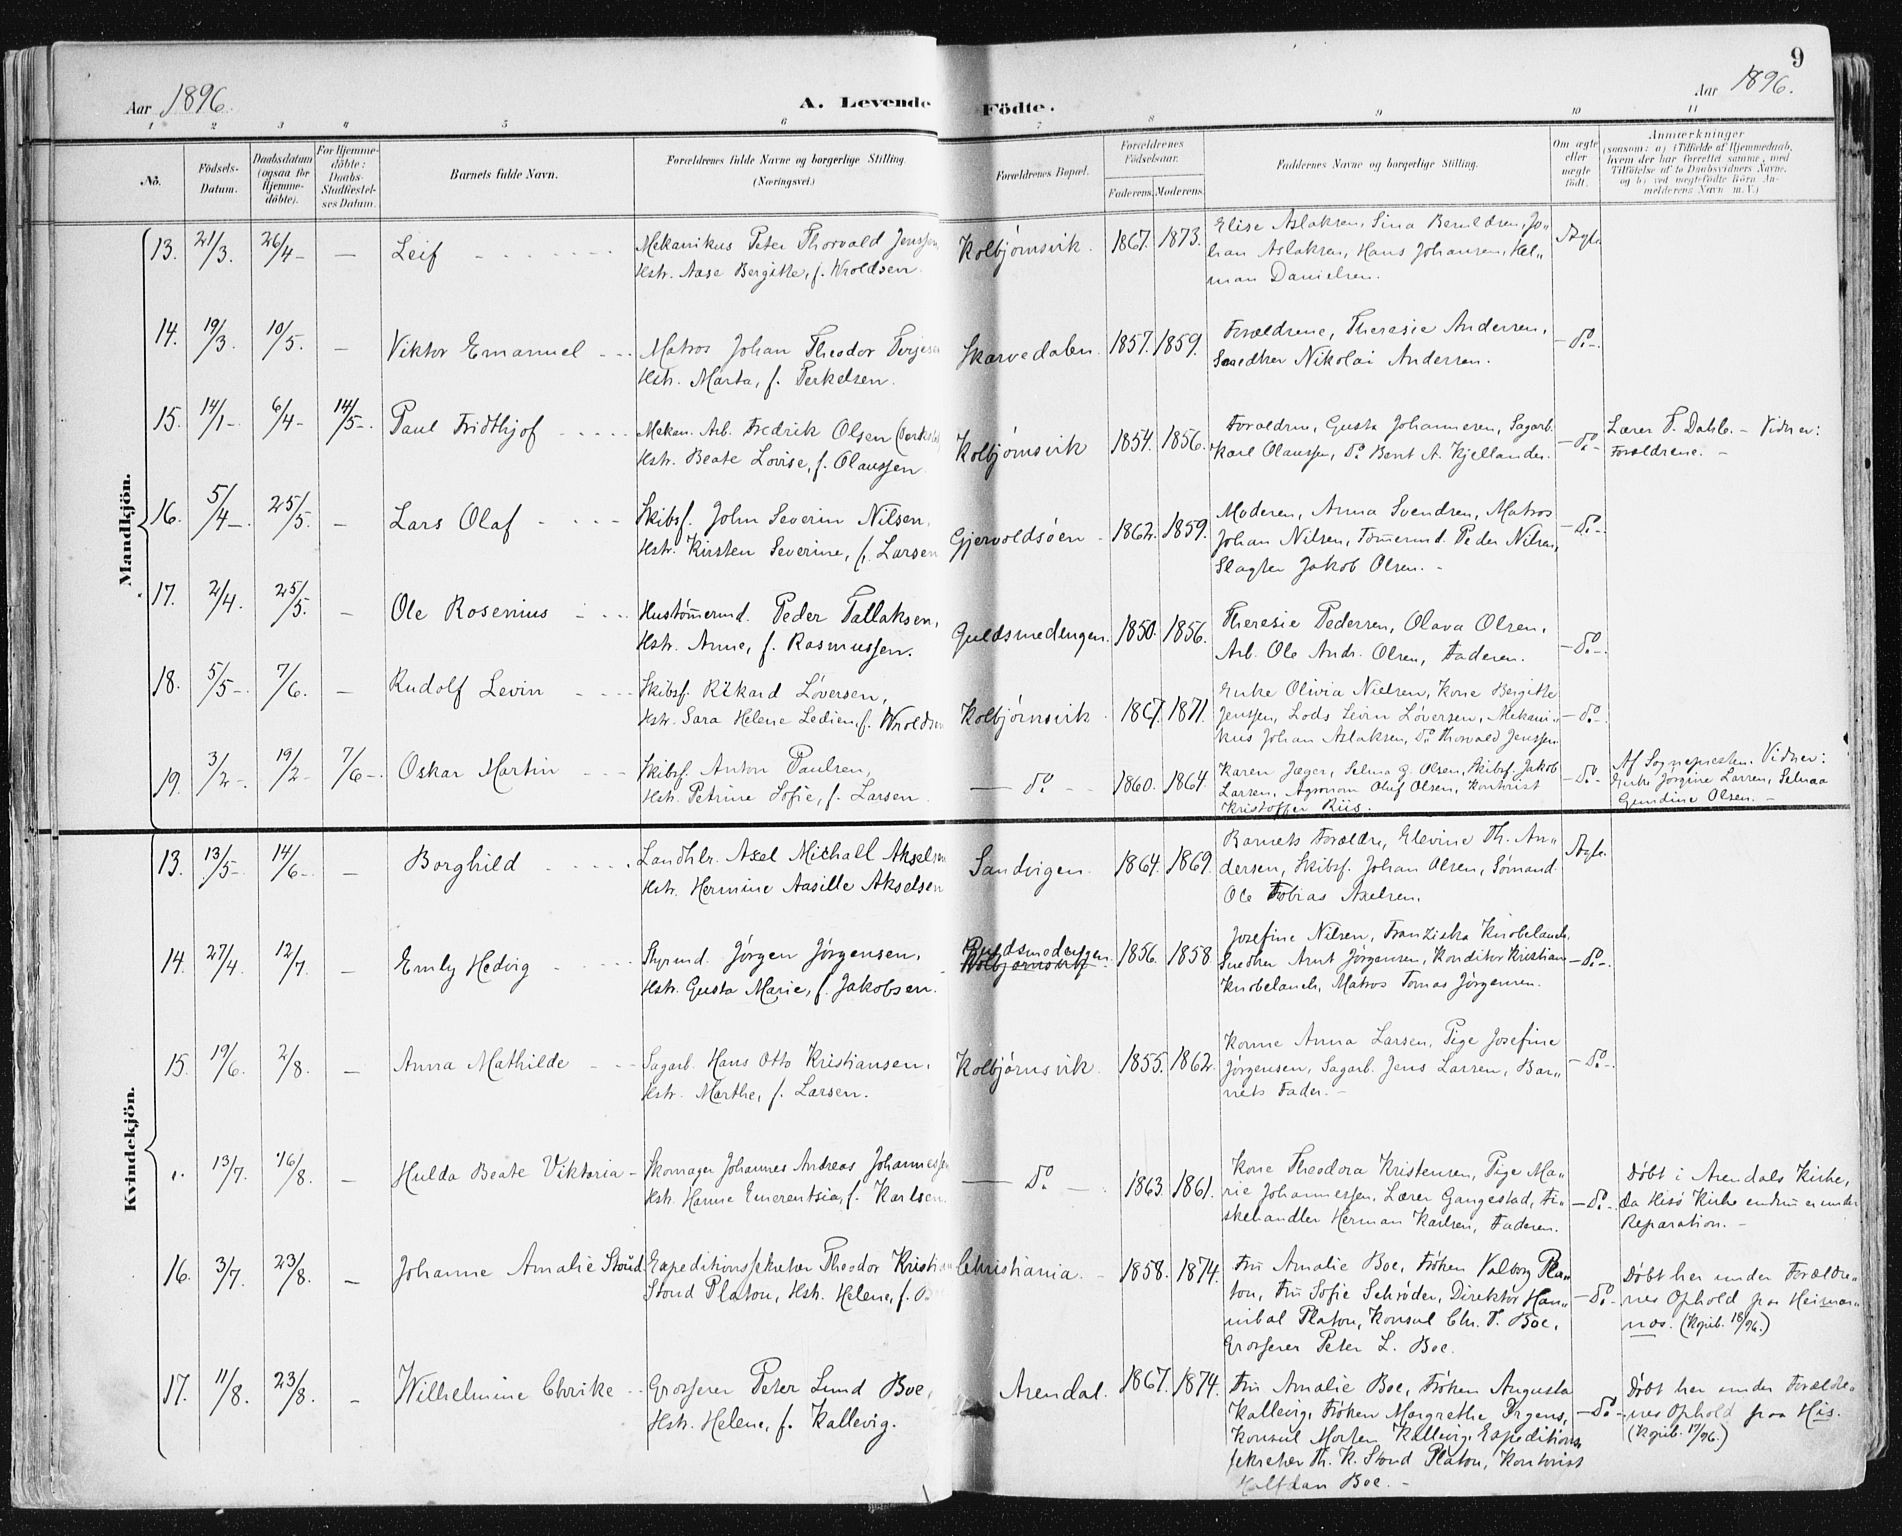 9
Aar 1896.
A. Levende Födte.
Aar 1896.
1 2 3 4 5 6 7 8 9 10 11
No.
Födsels-Datum.
Daabsdatum (ogsaa for Hjemme-döbte).
For Hjemme-döbte: Daabs-Stadfæstel-ses Datum.
Barnets fulde Navn.
Forældrenes fulde Navne og borgerlige Stilling. (Næringsvei.)
Forældrenes Bopæl.
Forældrenes Födselsaar.
Faderens. Moderens.
Faddernes Navne og borgerlige Stilling.
Om ægte eller uægte födt.
Anmærkninger
(saasom: a) i Tilfælde af Hjemmedaab,
hvem der har forrettet samme, med
Tilföielse af to Daabsvidners Navne,
og b) ved uægtefödte Börn An-
melderens Navn m. V.)
Mandkjön.
13. 21/3. 26/4 - — Leif
Mekanikus Peter Thorvald Jenssen
Hstr. Aase Bergitte, f. Wroldsen.
Kolbjörnsvik. 1867. 1873.
Elise Aslaksen, Sina Beruldsen, Jo"
han Aslaksen, Hans Johansen, Hel"
man Danielsen.
Ægte
14. 19/3. 10/5. — Viktor Emanuel
Matros Johan Theodor Terjesen
Hstr. Marta, f. Terkelsen.
Skarvedalen. 1857. 1859.
Forældrene, Theresie Andersen,
Snedker Nikolai Andersen.
— do —
15. 14/1-. 6/4- 14/5-. Paul Fridthjof
Mekan. Arb. Fredrik Olsen
Hstr. Beate Lovise, f. Olaussen
Kolbjörnsvik 1854. 1856.
Forældrene, Gusta Johannesen, Sagarb.
Karl Olaussen, do Bent A. Kjellander.
— do —
Lærer T. Dahle. — Vidner:
Forældrene. —
16. 5/4-. 25/5. — Lars Olaf
Skibsf. John Severin Nilsen,
Hstr. Kirsten Severine, f. Larsen
Gjervoldsöen 1862. 1859.
Moderen, Anna Svendsen, Matros
Johan Nilsen, Tömermd. Peder Nilsen,
Slagter Jakob Olsen. —
— do —
17. 2/4. 25/5. — Ole Rosenius
Hustömermd. Peder Tallaksen,
Hstr. Anne, f. Rasmussen.
Guldsmedengen. 1850. 1856.
Theresie Pedersen, Olava Olsen,
Arb. Ole Andr. Olsen, Faderen.
— do —
18. 5/5-. 7/6. — Rudolf Levin
Skibsf. Rikard Löversen,
Hstr. Sara Helene Ledien, f. Wroldsen
Kolbjörnsvik 1867. 1871.
Enke Olivia Nielsen, Kone Bergitte
Jenssen, Lods Levin Löversen, Mekani"
kus Johan Aslaksen, do Thorvald Jenssen
— do —
19. 3/2-. 19/2- 7/6-. Oskar Martin
Skibsf. Anton Paulsen,
Hstr. Petrine Sofie, f. Larsen.
— do — 1860. 1864.
Karen Jæger, Selma G. Olsen, Skibsf. Jakob
Larsen, Agronom Oluf Olsen, Kontorist
Kristoffer Riis.
— do —
Af Sognepresten. Vidner:
Enke Jörgine Larsen, Selma
Gundine Olsen. —
Kvindekjön.
13. 13/5-. 14/6-. — Borghild
Landhlr. Axel Michall Akselsen
Hstr. Hermine Aasille Akselsen
Sandvigen. 1864. 1869.
Barnets Forældre, Elevine Th. An"
dersen, Skibsf. Johan Olsen, Sömand
Ole Tobias Axelsen.
Ægte.
14. 27/4. 12/7. — Emly Hedvig
Styrmd. Jörgen Jörgensen,
Hstr. Gusta Marie, f. Jakobsen.
Guldsmedengen
Kolbjörnsvik 1856. 1858
Josefine Nilsen, Franziska Knobelauch,
Snedker Arnt Jörgensen, Konditor Kristian
Knobelauch, Matros Tomas Jörgensen.
— do —
15. 19/6. 2/8. — Anna Mathilde
Sagarb. Hans Otto Kristiansen,
Hstr. Marthe, f. Larsen.
Kolbjörnsvik. 1855. 1862.
Konne Anna Larsen, Pige Josefine
Jörgensen, Sagarb. Jens Larsen, Bar"
nets Fader. —
— do —
13/7. 16/8. — Hulda Beate Viktoria
Skomager Johannes Andreas Johannessen
Hstr. Hanne Emerentsia, f. Karlsen.
— do — 1863. 1861.
Kone Theodora Kristensen, Pige Ma"
rie Johannessen, Lærer Gangestad, Fi"
skehandler Herman Karlsen, Faderen.
— do —
Döbt i Arendals Kirke,
da Hisö Kirke endnu er under
Reparation. —
16. 3/7. 23/8. — Johanne Amalie Stoud
Expeditionssekretær Theodor Kristian
Stoud Platou, Hstr. Helene, f. Boe
Christiania. 1858. 1874.
Fru Amalie Boe, Fröken Valborg Pla"
tou, Fru Sofie Schröder, Direktör Han"
nibal Platou, Konsul Chr. T. Boe,
Grosserer Peter L. Boe.
— do —
Döbt her under Forældre"
nes Ophold paa Heimar"
nas. (Kgrib. 18/96.)
17. 11/8. 23/8. — Wilhelmine Chrike
Grosserer Peter Lund Boe,
Hstr. Helene, f. Kallevig.
Arendal. 1867. 1874.
Fru Amalie Boe, Fröken Augusta
Kallevig, Fröken Margrethe Ørgens,
Konsul Morten Kallevig, Expeditions
sekretær Th. K. Stoud Platou, Kontorist
Boe. —
— do —
Döbt her under Forældre"
nes Ophold paa His.
(Kgrib. 17/96.)